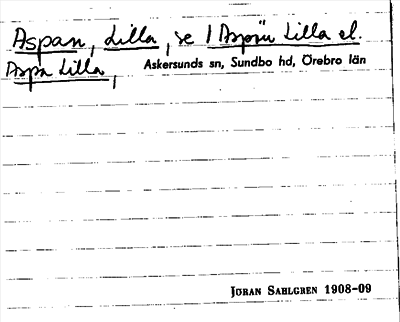 Aspan, Lilla, se 1 Aspön Lilla el.
Aspa Lilla, Askersunds sn, Sundbo hd, Örebro län
JÖRAN SAHLGREN 1908-09